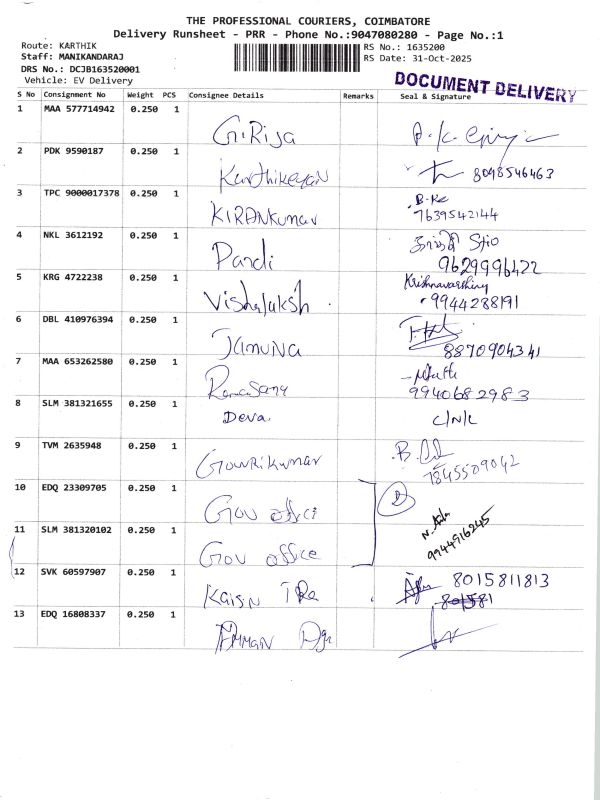 THE PROFESSIONAL COURIERS, COIMBATORE
Delivery Runsheet - PRR - Phone No.:9047080280 - Page No.:1
Route: KARTHIK
Staff: MANIKANDARAJ
DRS No.: DCJB163520001
Vehicle: EV Delivery
RS No.: 1635200
RS Date: 31-Oct-2025
DOCUMENT DELIVERY
S No Consignment No Weight PCS Consignee Details Remarks Seal & Signature
1 MAA 577714942 0.250 1
GiRija
2 PDK 9590187 0.250 1
Karthikeyan 8098546463
3 TPC 9000017378 0.250 1
KIRANkumar 7639542144
4 NKL 3612192 0.250 1
Pandi 9629996422
5 KRG 4722238 0.250 1
Vishalaksh 9944288191
6 DBL 410976394 0.250 1
JAMUNA 8870904341
7 MAA 653262580 0.250 1
9940682983
8 SLM 381321655 0.250 1
Deva C/N/L
9 TVM 2635948 0.250 1
GowriKumar 7845509042
10 EDQ 23309705 0.250 1
Gov office
11 SLM 381320102 0.250 1
Gov office 9944916245
12 SVK 60597907 0.250 1
8015811813
13 EDQ 16808337 0.250 1